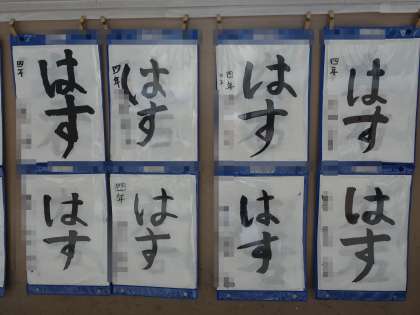 はす
四年
はす
四年
はす
四年
はす
四年
はす
はす
四年
はす
はす